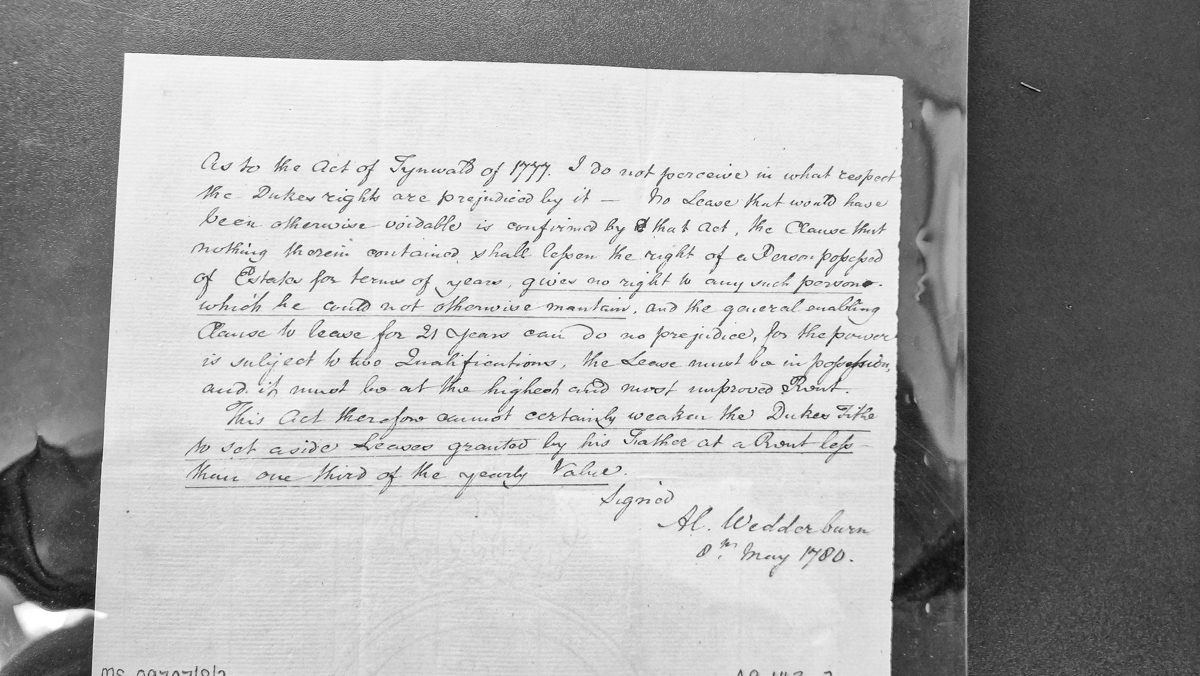 As to the Act of Tynwald of 1777. I do not perceive in what respect
the Dukes rights are prejudiced by it — No Lease that would have
been otherwise voidable is confirmed by that Act, the Clause that
nothing therein contained shall lessen the right of a Person possessed
of Estates for terms of years, gives no right to any such person
which he could not otherwise mantain, and the general enabling
Clause to lease for 21 years can do no prejudice, for the power
is subject to two Qualifications, the Lease must be in possession,
and it must be at the highest and most improved Rent.
This Act therefore cannot certainly weaken the Dukes Title
to set aside Leases granted by his Father at a Rent less
than one third of the yearly Value.
Signed
Al. Wedderburn
8th May 1780.
MS 09707/8/2